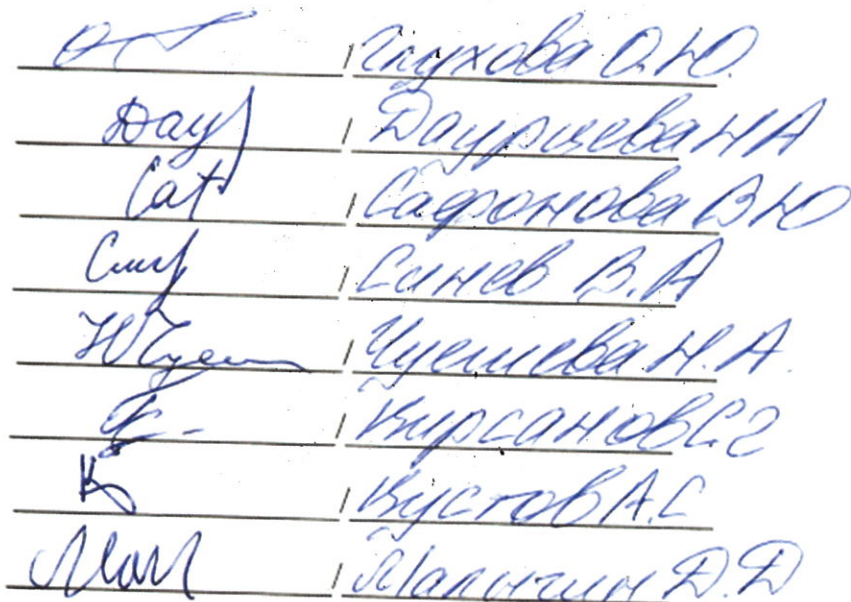 / Глухова О.Ю.
Дау / Даурцева Н А
Саф / Сафонова В Ю
Син / Синев В.А
НЧуеш / Чуешева Н.А.
/ Кирсанов С.Г
К / Кустов А.С
Мал / Малыгин Д.Д